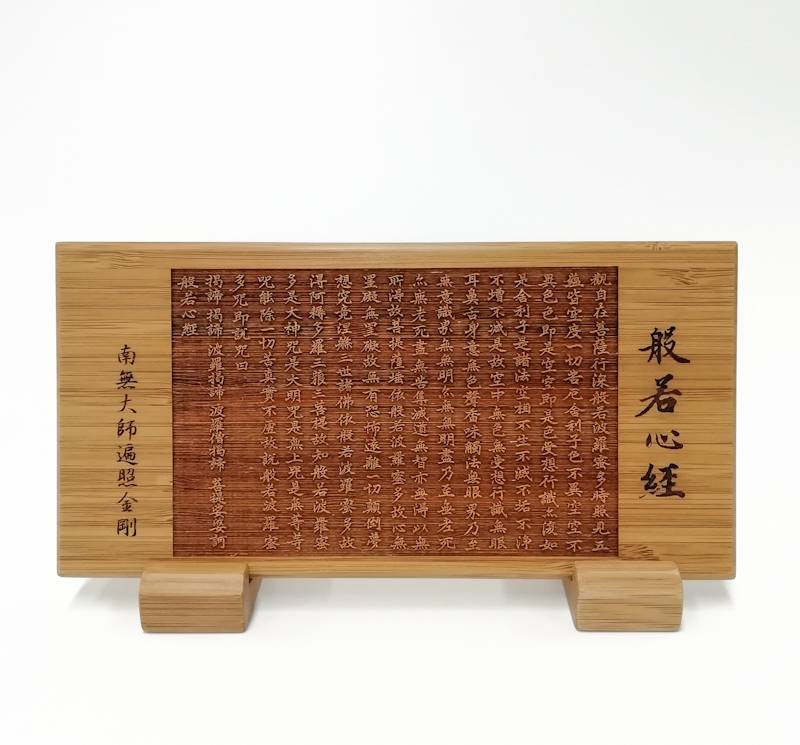 般若心經
觀自在菩薩行深般若波羅蜜多時照見五
蘊皆空度一切苦厄舍利子色不異空空不
異色色即是空空即是色受想行識亦復如
是舍利子是諸法空相不生不滅不垢不淨
不增不減是故空中無色無受想行識無眼
耳鼻舌身意無色聲香味觸法無眼界乃至
無意識界無無明亦無無明盡乃至無老死
亦無老死盡無苦集滅道無智亦無得以無
所得故菩提薩埵依般若波羅蜜多故心無
罣礙無罣礙故無有恐怖遠離一切顛倒夢
想究竟涅槃三世諸佛依般若波羅蜜多故
得阿耨多羅三藐三菩提故知般若波羅蜜
多是大神咒是大明咒是無上咒是無等等
咒能除一切苦真實不虛故說般若波羅蜜
多咒即說咒曰
揭諦 揭諦 波羅揭諦 波羅僧揭諦 菩提娑婆訶
般若心經
南無大師遍照金剛